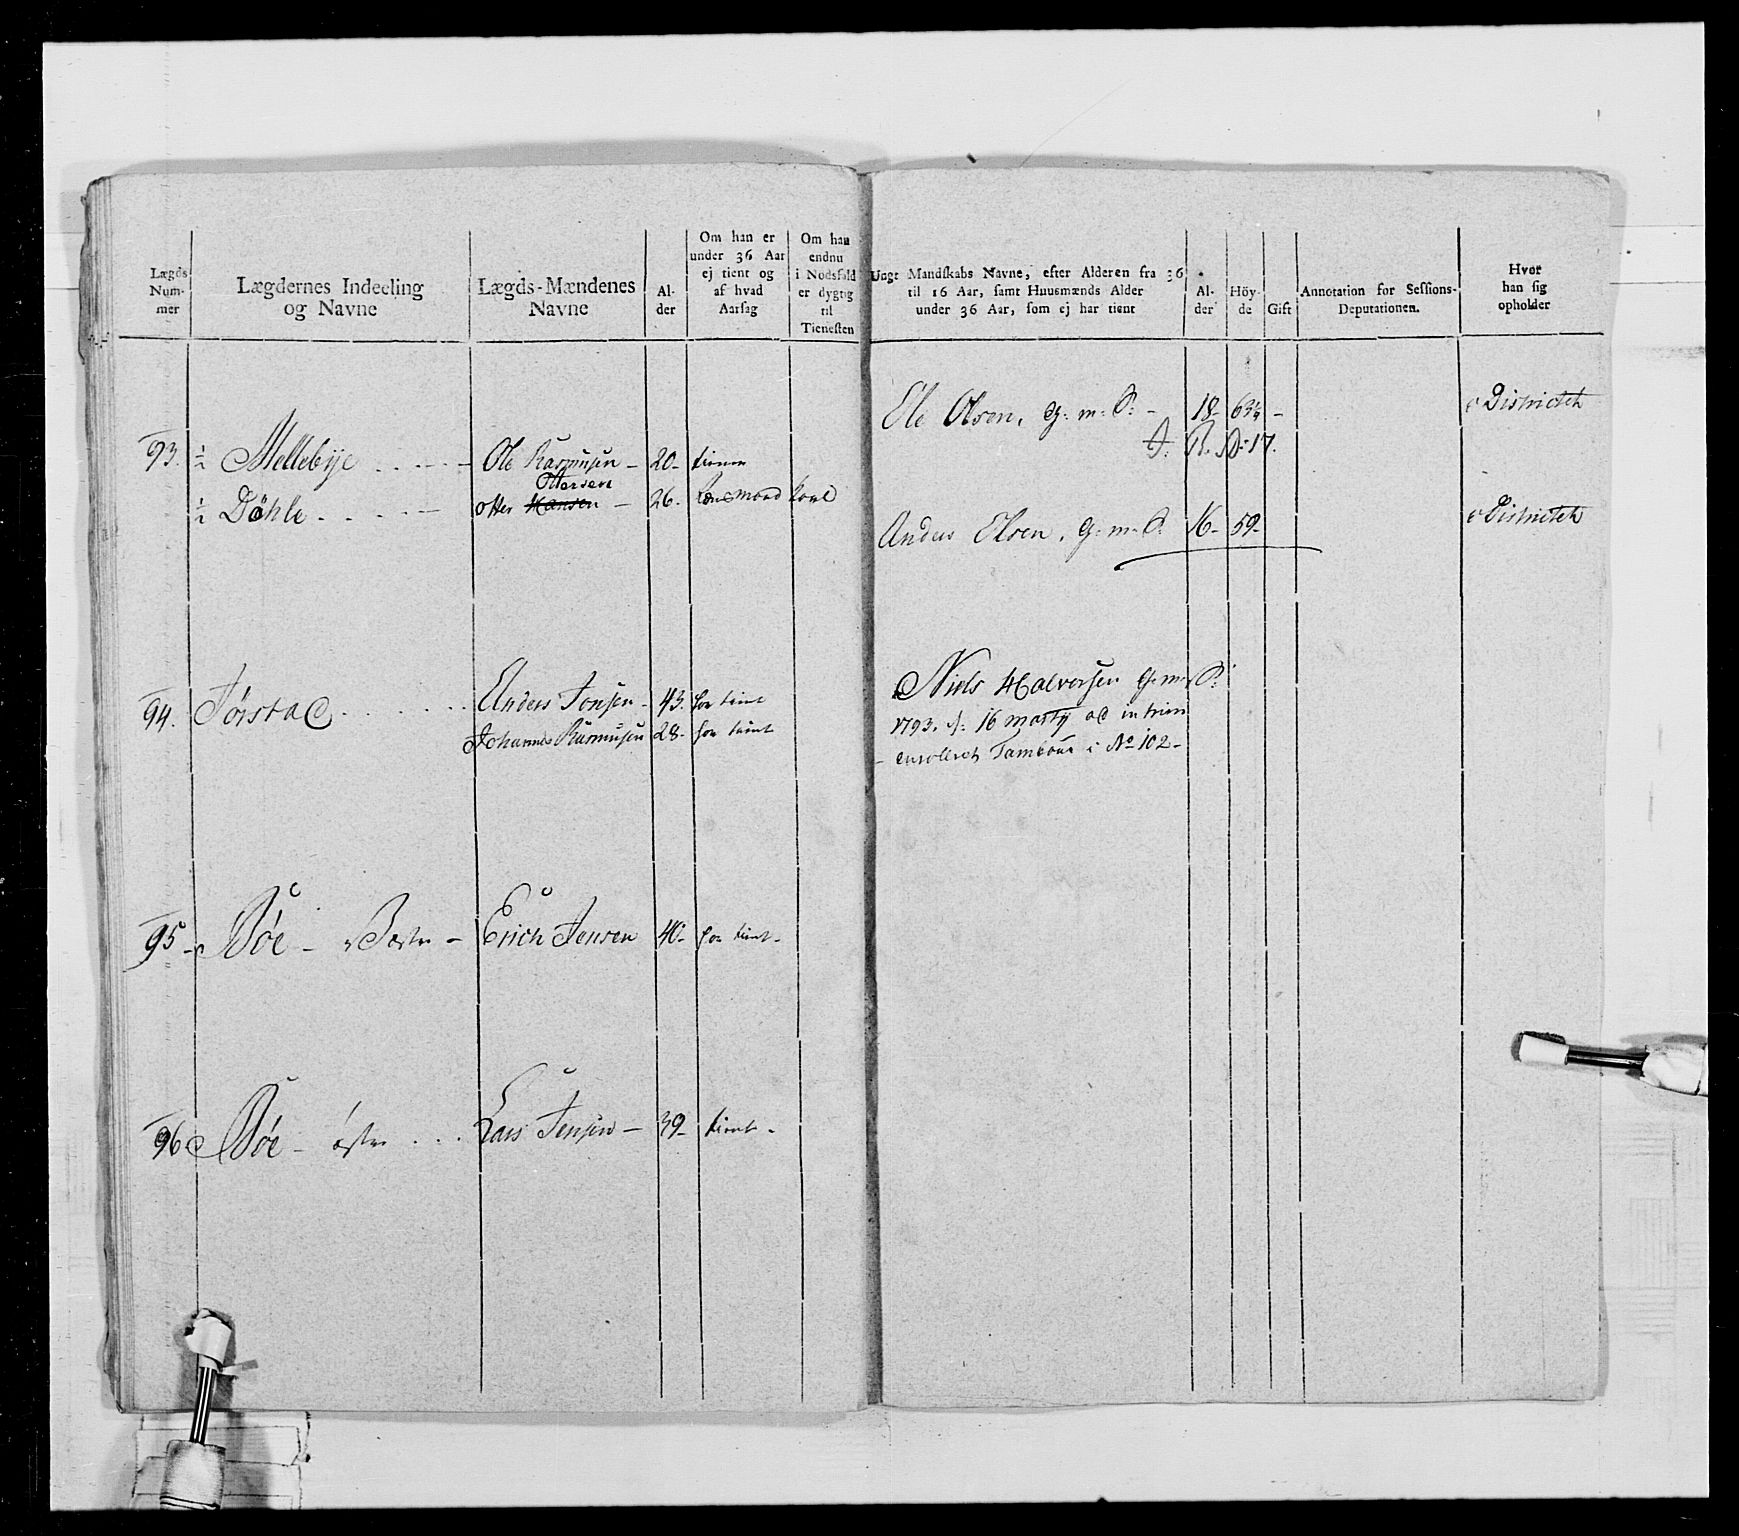 Lægds Num- mer
Lægdernes Indeeling og Navne
Lægds-Mændenes Navne
Al- der
Om han er under 36 Aar ej tient og af hvad Aarsag
Om han endnu i Nodsfald er dygtig til Tienesten
Ungt Mandskabs Navne, efter Alderen fra 36 til 16 Aar, samt Huusmænds Alder under 36 Aar, som ej har tient
Al- der
Höy- de
Gift
Annotation for Sessions- Deputationen.
Hvor han sig opholder
93. ½ Mellebye Ole Rasmusen 20
½ Döhle Otter Hansen Ottersen 26
Ole Olsen, G: m: S: 18 i Districtet
Anders Olsen, G: m: S: 16 59 i Districtet
94. Torstad Anders Jonsen 43. har tient
Johannes Rasmusen 28 har tient
Niels Halvorsen G: m: S:
1793, d: 16 Marty ad interim
enrolleret Tambour i No 102
95 Böe Vestre Erich Jensen 40 har tient
96 Böe östre Lars Jensen 39 tient